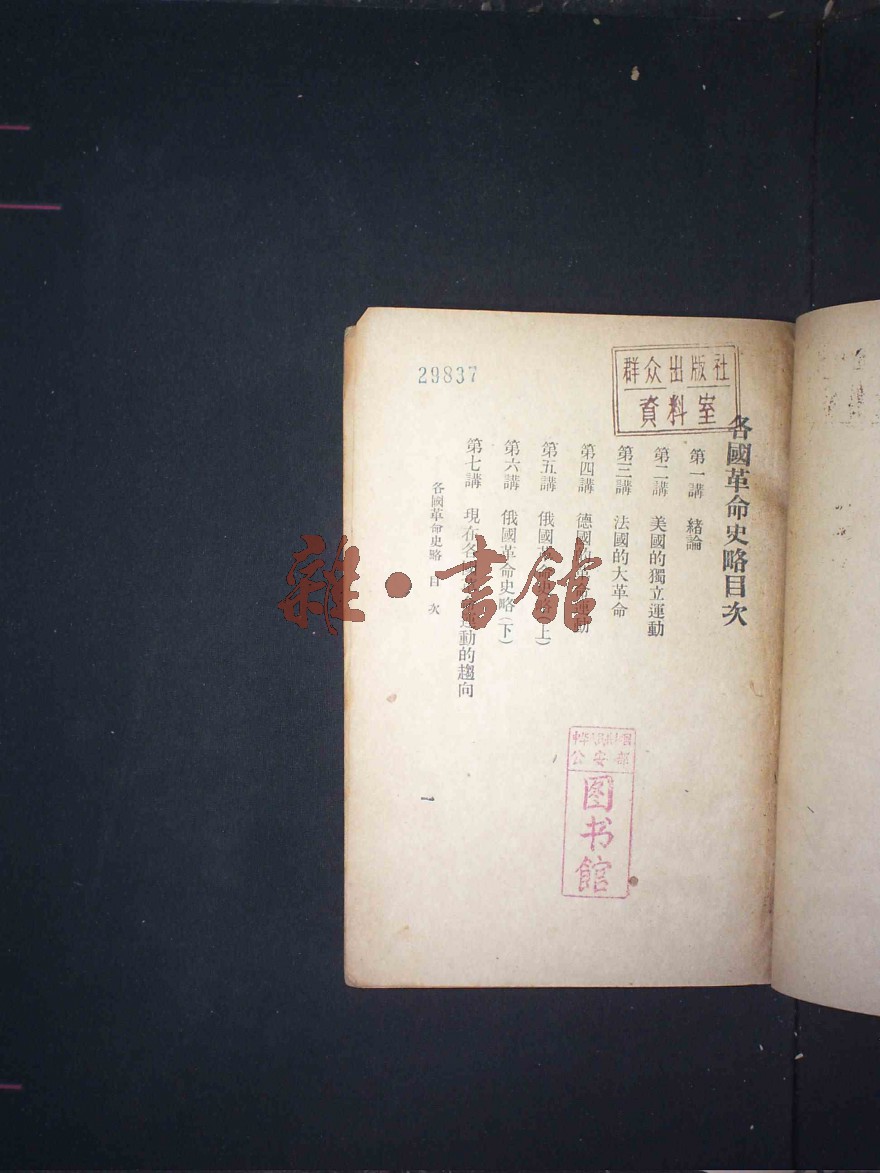 各國革命史略目次
第一講 緒論
第二講 美國的獨立運動
第三講 法國的大革命
第四講 德國的革命運動
第五講 俄國革命史略(上)
第六講 俄國革命史略(下)
第七講 現在各 運動的趨向
各國革命史略 目 次
一
29837
群众出版社
資料室
公安部
图书馆
雜·書館